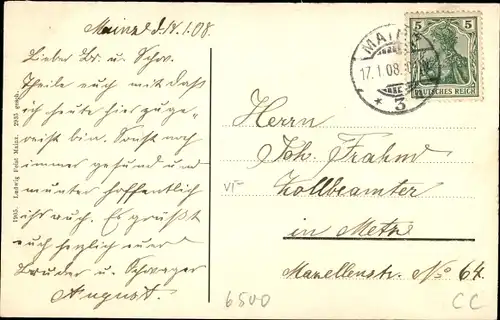 Mainz d. 17.1.08.
Lieber Br. u. Schw.
Theile euch mit daß
ich heute hier zuge-
reist bin. Sonst noch
immer gesund und
munter hoffentlich
ihr auch. Es grüßt
euch herzlich euer
Bruder u. Schwager
August.
1905. Ludwig Feist Mainz. 2935 gesch.
5 5
DEUTSCHES REICH
MAINZ
17.1.08.
* 3
Herrn
Joh. Frahm
Zollbeamter
in Metz
No 64.
VI-
6500
CC